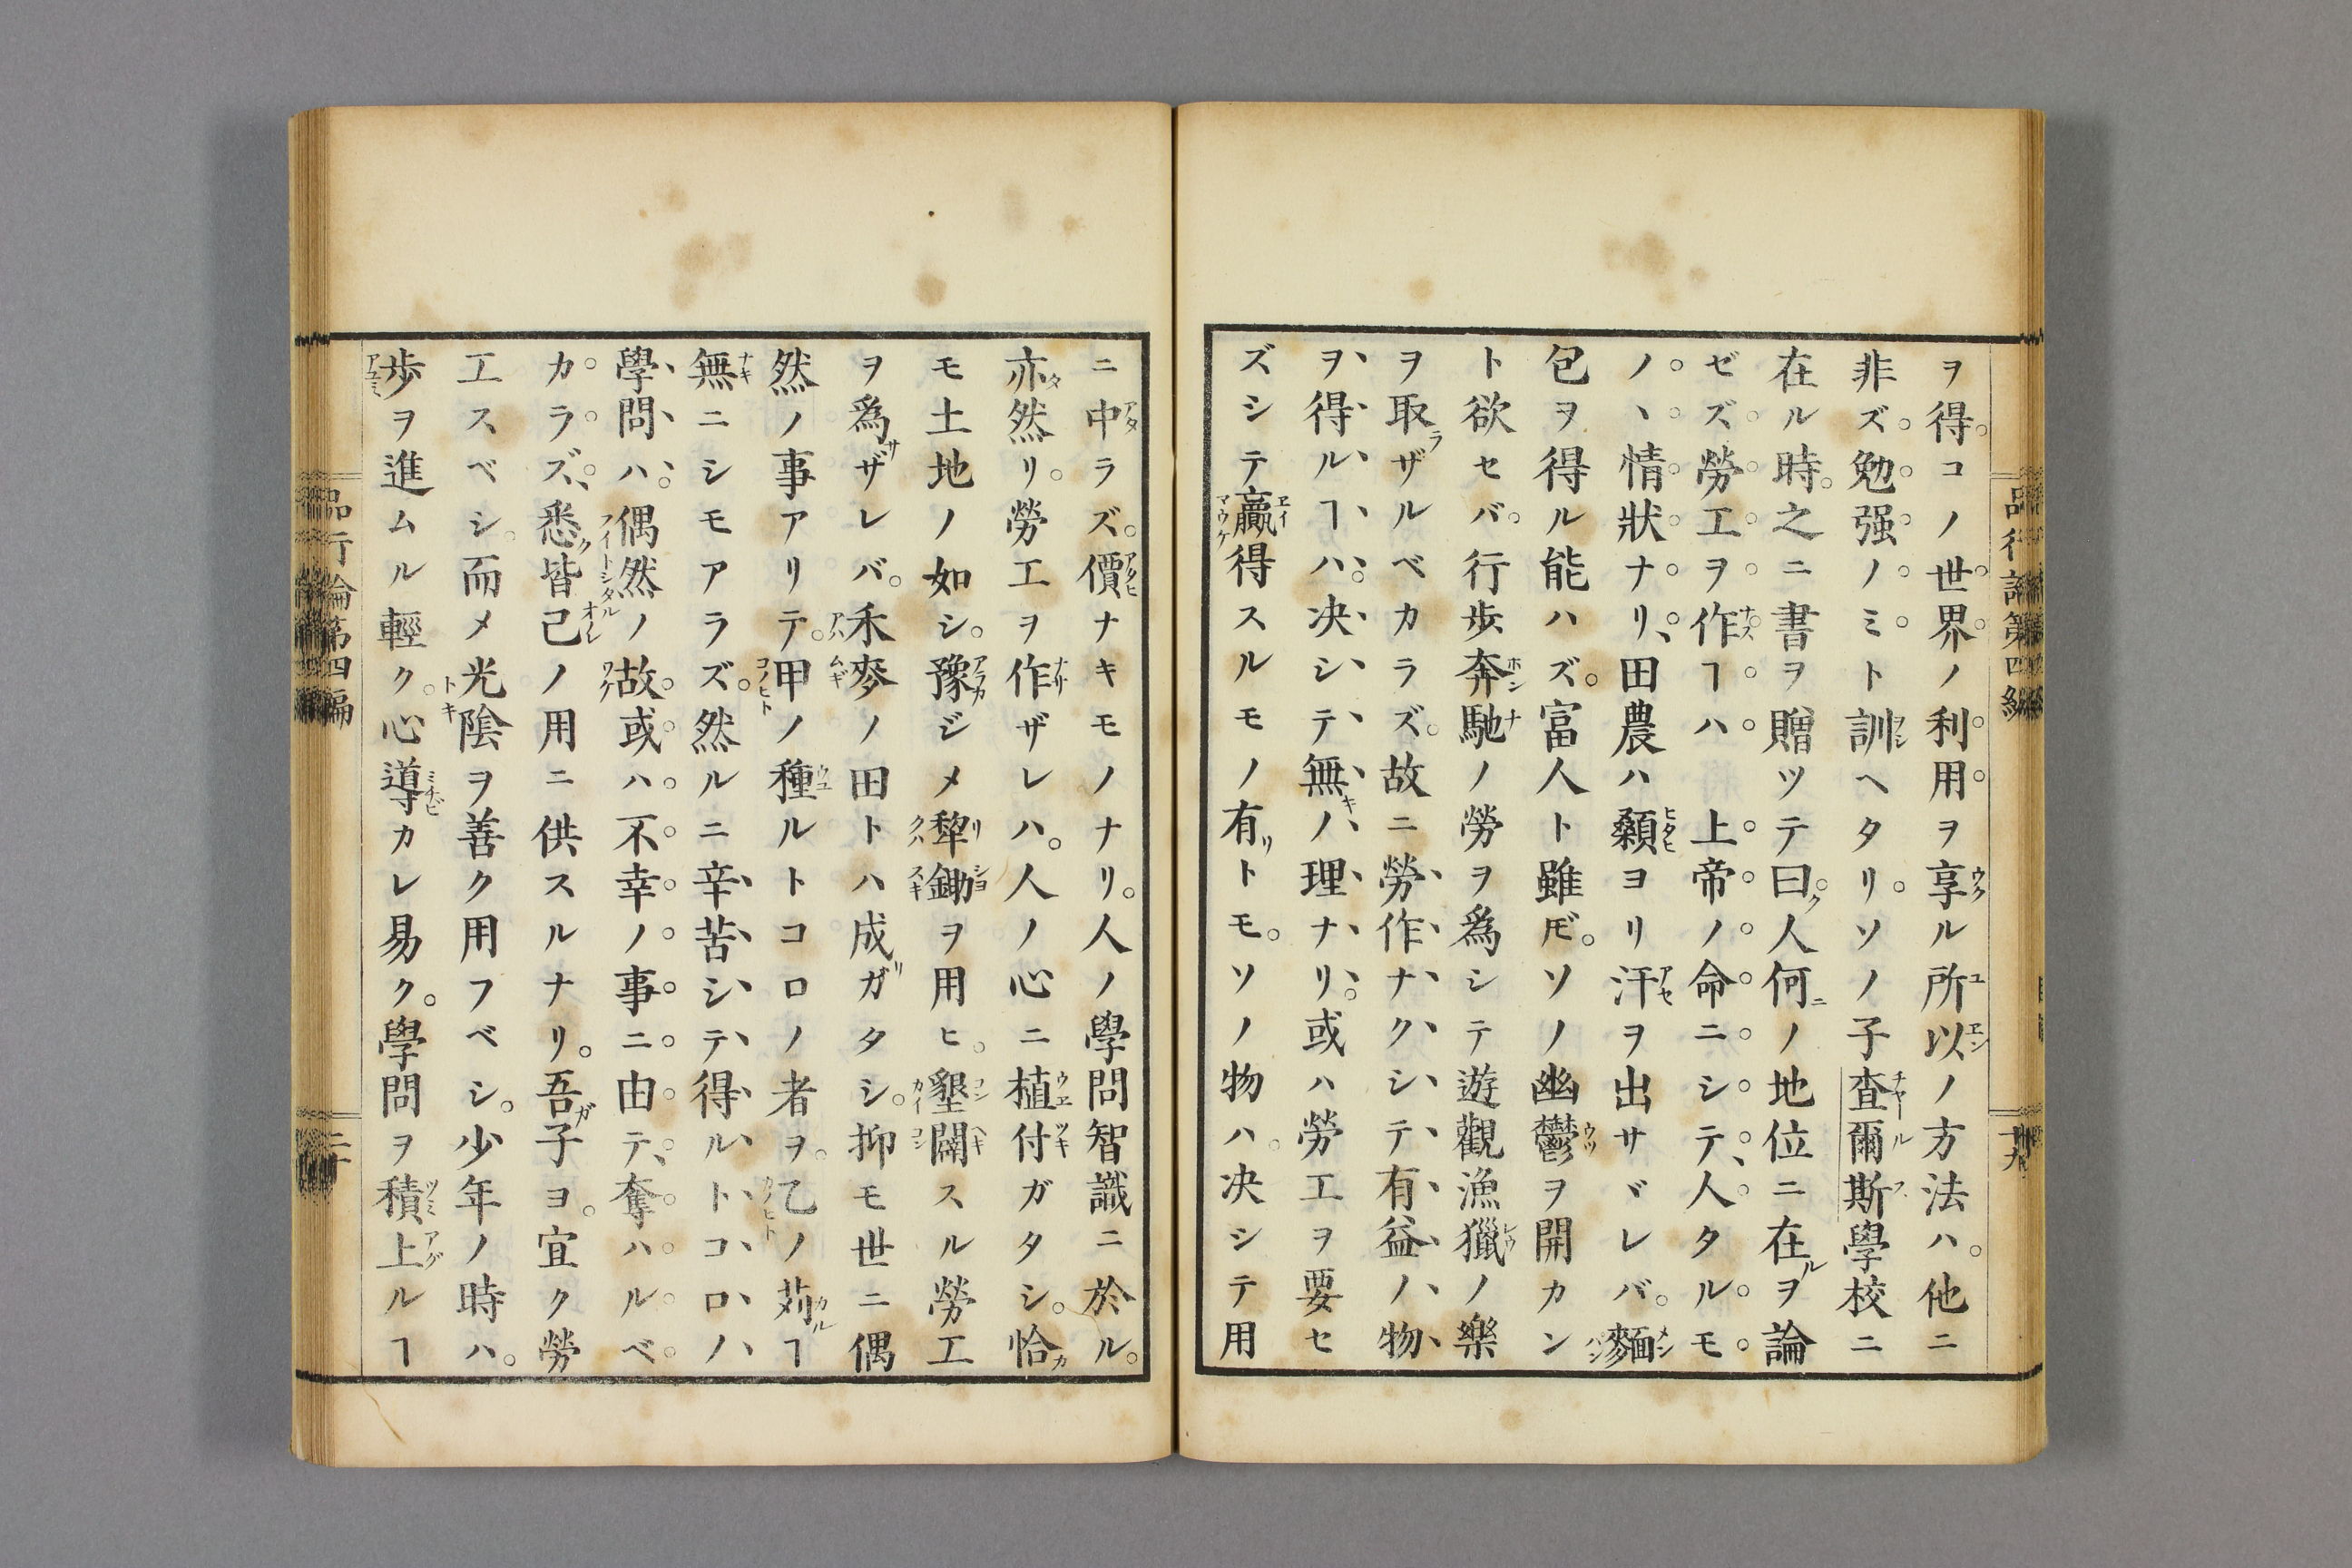 ヲ得。コノ世界ノ利用ヲ享ル所以ノ方法ハ。他ニ
非ズ勉强ノミト訓ヘタリ。ソノ子査爾斯學校ニ
在ル時。之ニ書ヲ贈ツテ曰ク。人何ノ地位ニ在ルヲ論
ゼズ勞工ヲ作ヿハ　上帝ノ命ニシテ、人タルモ
ノヽ情狀ナリ、田農ハ顙ヨリ汗ヲ出サヾレバ。麵
包ヲ得ル能ハズ。富人ト雖𪜈。ソノ幽鬱ヲ開カン
ト欲セバ。行步奔馳ノ勞ヲ爲シテ遊觀漁獵ノ樂
ヲ取ラザルベカラズ。故ニ勞作ナクシテ有益ノ物
ヲ得ルヿハ。决シテ無キノ理ナリ。或ハ勞工ヲ要セ
ズシテ贏得スルモノ有リトモ。ソノ物ハ。决シテ用
品行論第四編
十九
ニ中ラズ。價ナキモノナリ。人ノ學問智識ニ於ル。
亦タ然リ。勞工ヲ作ザレハ。人ノ心ニ植付ガタシ。恰カ
モ土地ノ如シ。豫ジメ犂鋤ヲ用ヒ。墾闢スル勞工
ヲ爲サザレバ。禾麥ノ田トハ成リガタシ。抑モ世ニ偶
然ノ事アリテ。甲ノ種ルトコロノ者ヲ。乙ノ苅ルヿ
無ニシモアラズ。然ルニ辛苦シテ得ルトコロノ
學問ハ。偶然ノ故。或ハ不幸ノ事ニ由テ、奪ハルベ
カラズ、悉ク皆己レノ用ニ供スルナリ。吾ガ子ヨ。宜ク勞
工スベシ。而メ光陰ヲ善ク用フベシ。少年ノ時ハ。
步ヲ進ムル輕ク。心導カレ易ク。學問ヲ積上ルヿ
品行論第四編
二十